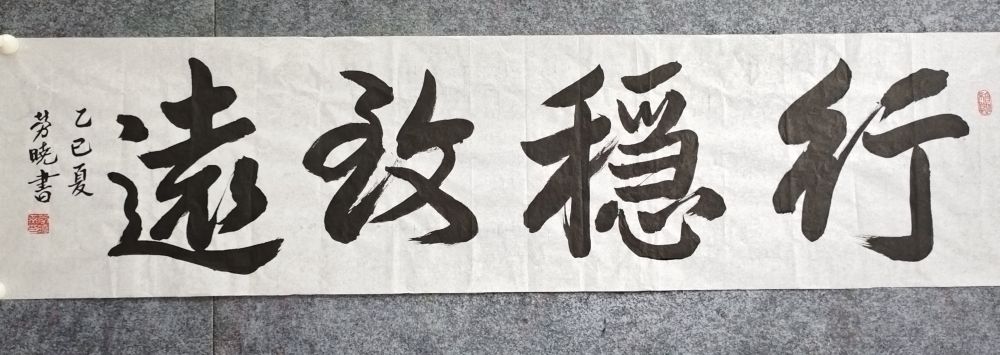 行穩致遠
乙巳夏
芳曉書